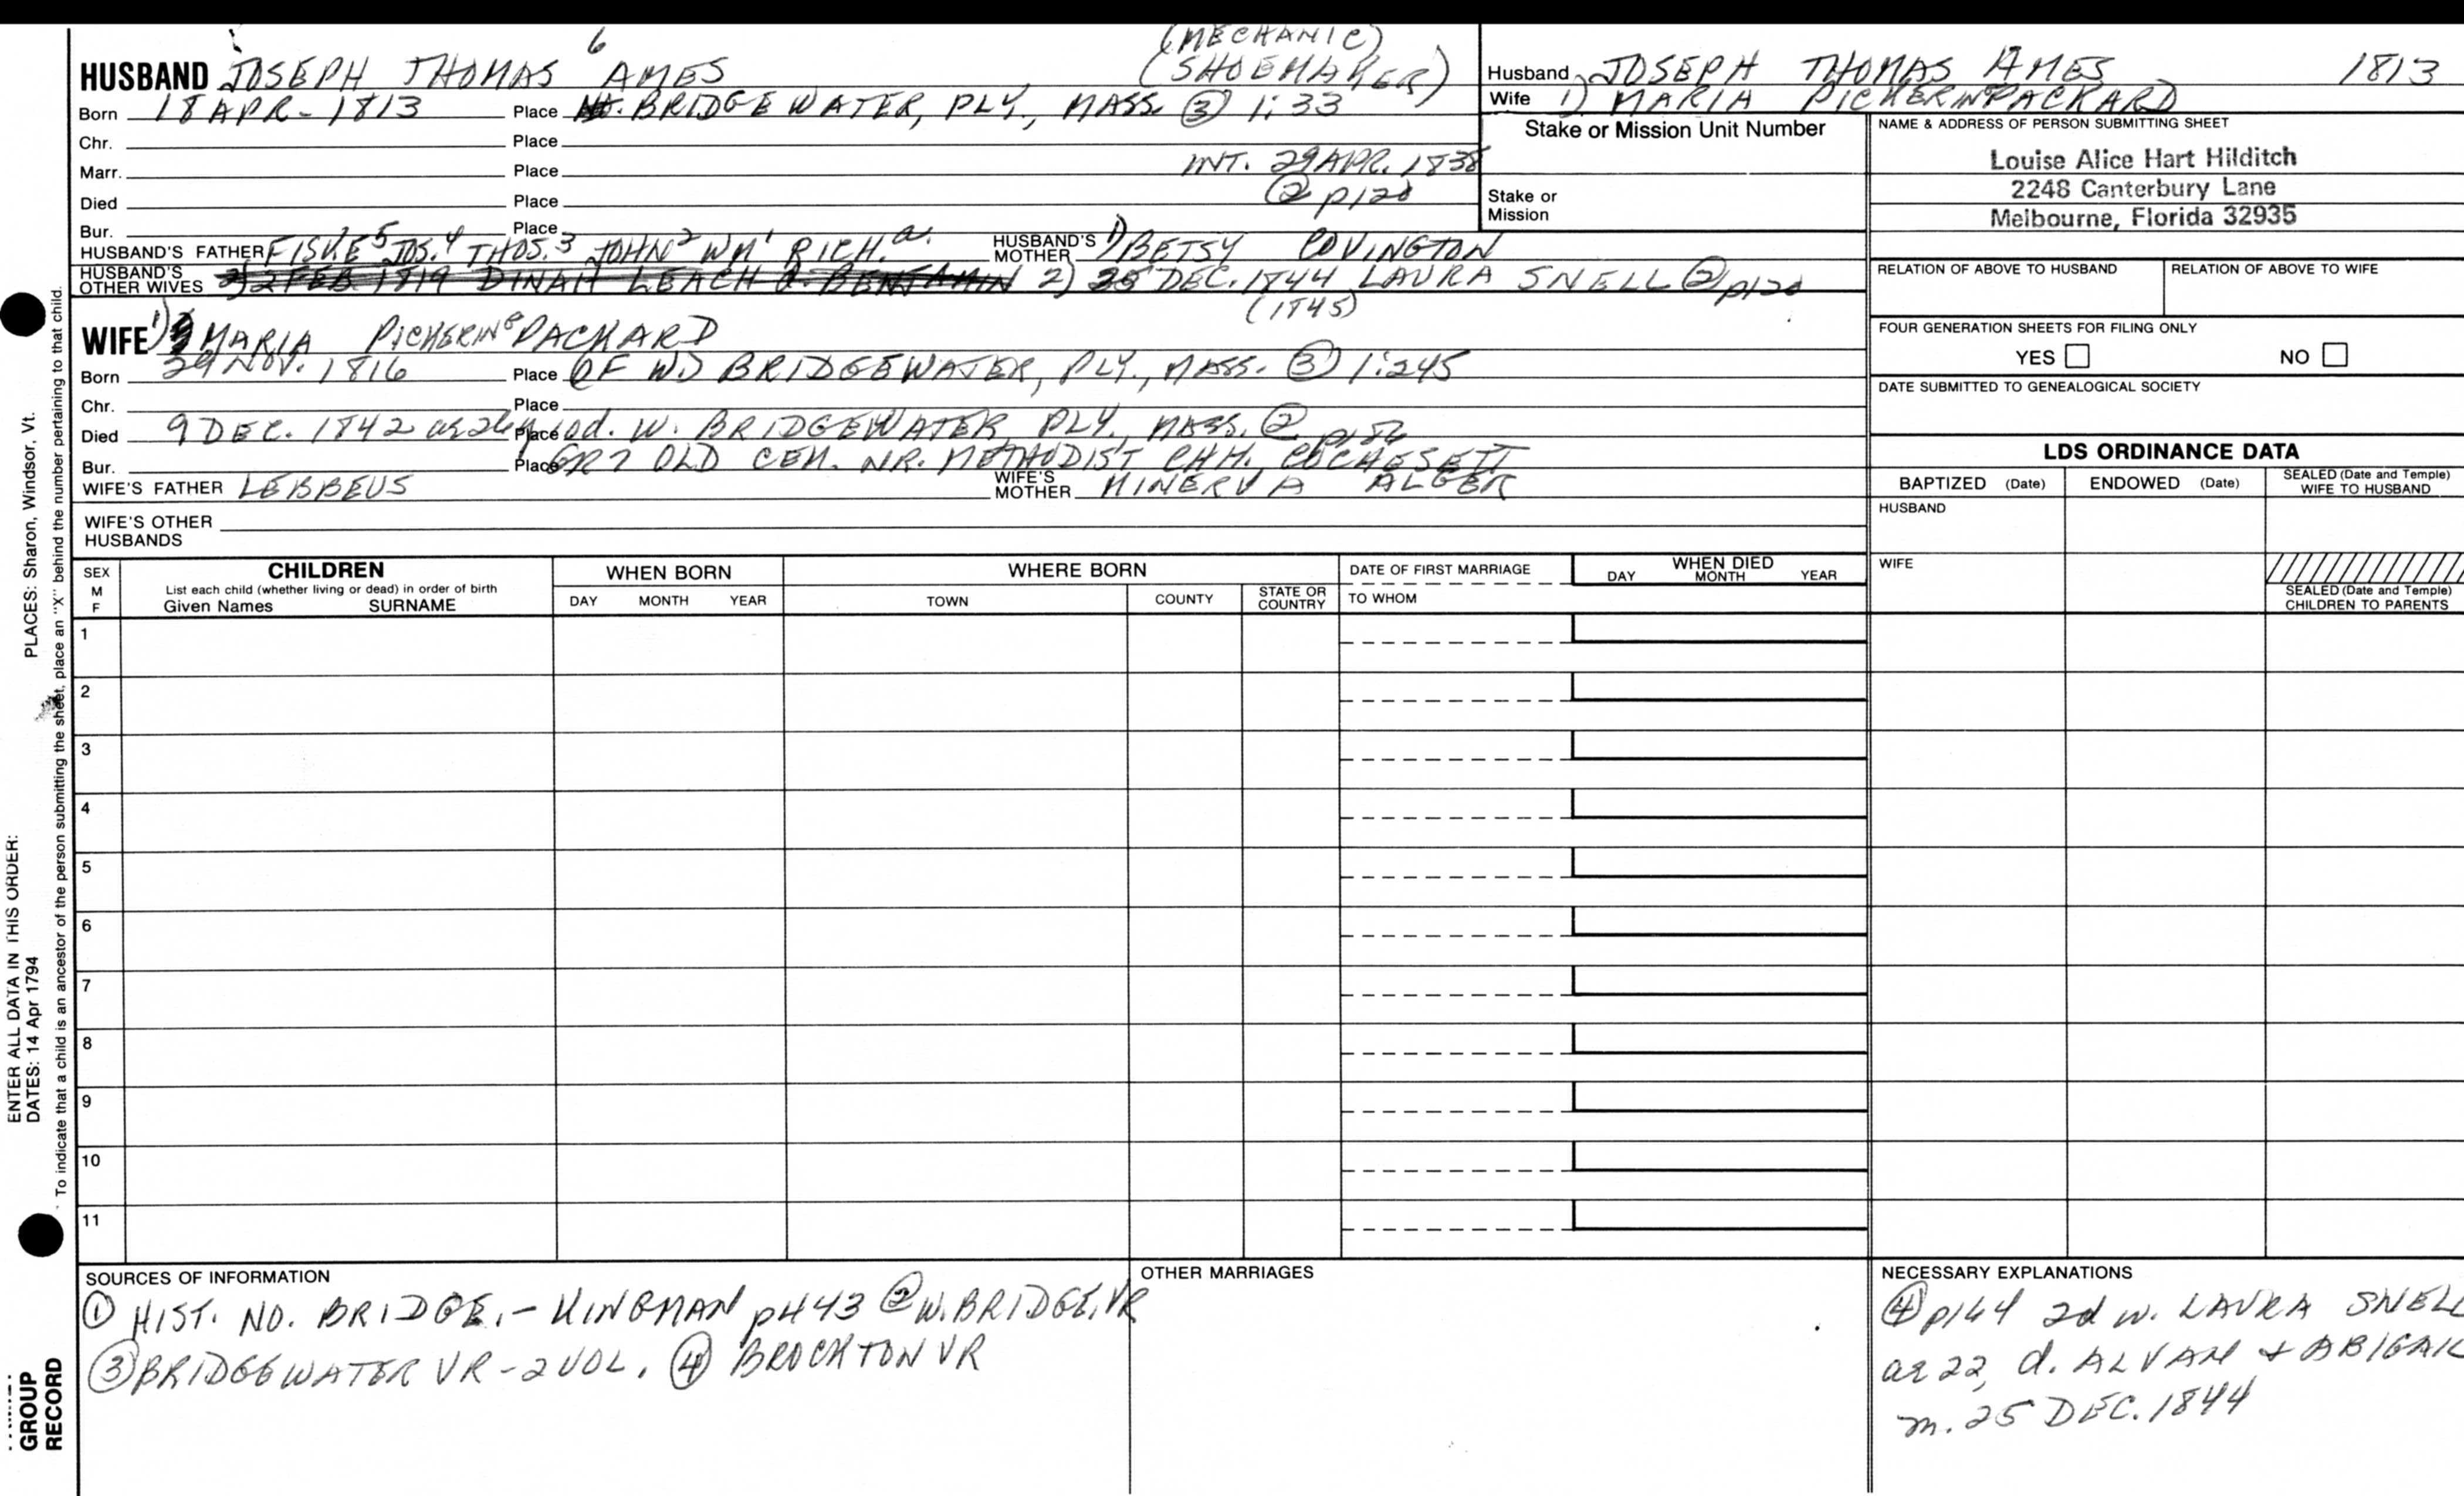 6 (MECHANIC)
HUSBAND JOSEPH THOMAS AMES (SHOEMAKER)
Born 18 APR - 1813 Place BRIDGEWATER, PLY., MASS. ③ 1:33
Chr. Place
Marr. Place INT. 29 APR. 1838
Died Place ② p120
Bur. Place
HUSBAND'S FATHER FISKE 5 JOS. 4 THOS. 3 JOHN 2 WM 1 RICH. a. HUSBAND'S MOTHER 1) BETSY COVINGTON
HUSBAND'S OTHER WIVES 2) 2 FEB 1819 DINAH LEACH d. BENJAMIN 2) 25 DEC. 1844 LAURA SNELL ② p120
(1845)
WIFE 1) MARIA PICKERING PACKARD
Born 29 NOV. 1816 Place OF W. BRIDGEWATER, PLY., MASS. ③ 1:245
Chr. Place
Died 9 DEC. 1842 Place W. BRIDGEWATER PLY., MASS. ②
Bur. Place GR7 OLD CEM. NR. METHODIST CHH. COCHESETT
WIFE'S FATHER LEBBEUS WIFE'S MOTHER MINERVA ALGER
WIFE'S OTHER HUSBANDS
Husband JOSEPH THOMAS AMES 1813
Wife 1) MARIA PICKERING PACKARD
Stake or Mission Unit Number
Stake or
Mission
NAME & ADDRESS OF PERSON SUBMITTING SHEET
Louise Alice Hart Hilditch
2248 Canterbury Lane
Melbourne, Florida 32935
RELATION OF ABOVE TO HUSBAND RELATION OF ABOVE TO WIFE
FOUR GENERATION SHEETS FOR FILING ONLY
YES NO
DATE SUBMITTED TO GENEALOGICAL SOCIETY
LDS ORDINANCE DATA
BAPTIZED (Date) ENDOWED (Date) SEALED (Date and Temple) WIFE TO HUSBAND
HUSBAND
WIFE
SEALED (Date and Temple)
CHILDREN TO PARENTS
SEX M F
CHILDREN
List each child (whether living or dead) in order of birth
Given Names SURNAME
WHEN BORN
DAY MONTH YEAR
WHERE BORN
TOWN COUNTY STATE OR COUNTRY
DATE OF FIRST MARRIAGE
TO WHOM
WHEN DIED
DAY MONTH YEAR
1
2
3
4
5
6
7
8
9
10
11
SOURCES OF INFORMATION
① HIST. NO. BRIDGE. - KINGMAN p443 ② W. BRIDGE. VR
③ BRIDGEWATER VR - 2 VOL. ④ BROCKTON VR
OTHER MARRIAGES
NECESSARY EXPLANATIONS
④ p164 2d w. LAURA SNELL
ae 22, d. ALVAN + ABIGAIL
m. 25 DEC. 1844
PLACES: Sharon, Windsor, Vt.
ENTER ALL DATA IN THIS ORDER:
DATES: 14 Apr 1794
To indicate that a child is an ancestor of the person submitting the sheet, place an "X" behind the number pertaining to that child.
GROUP
RECORD